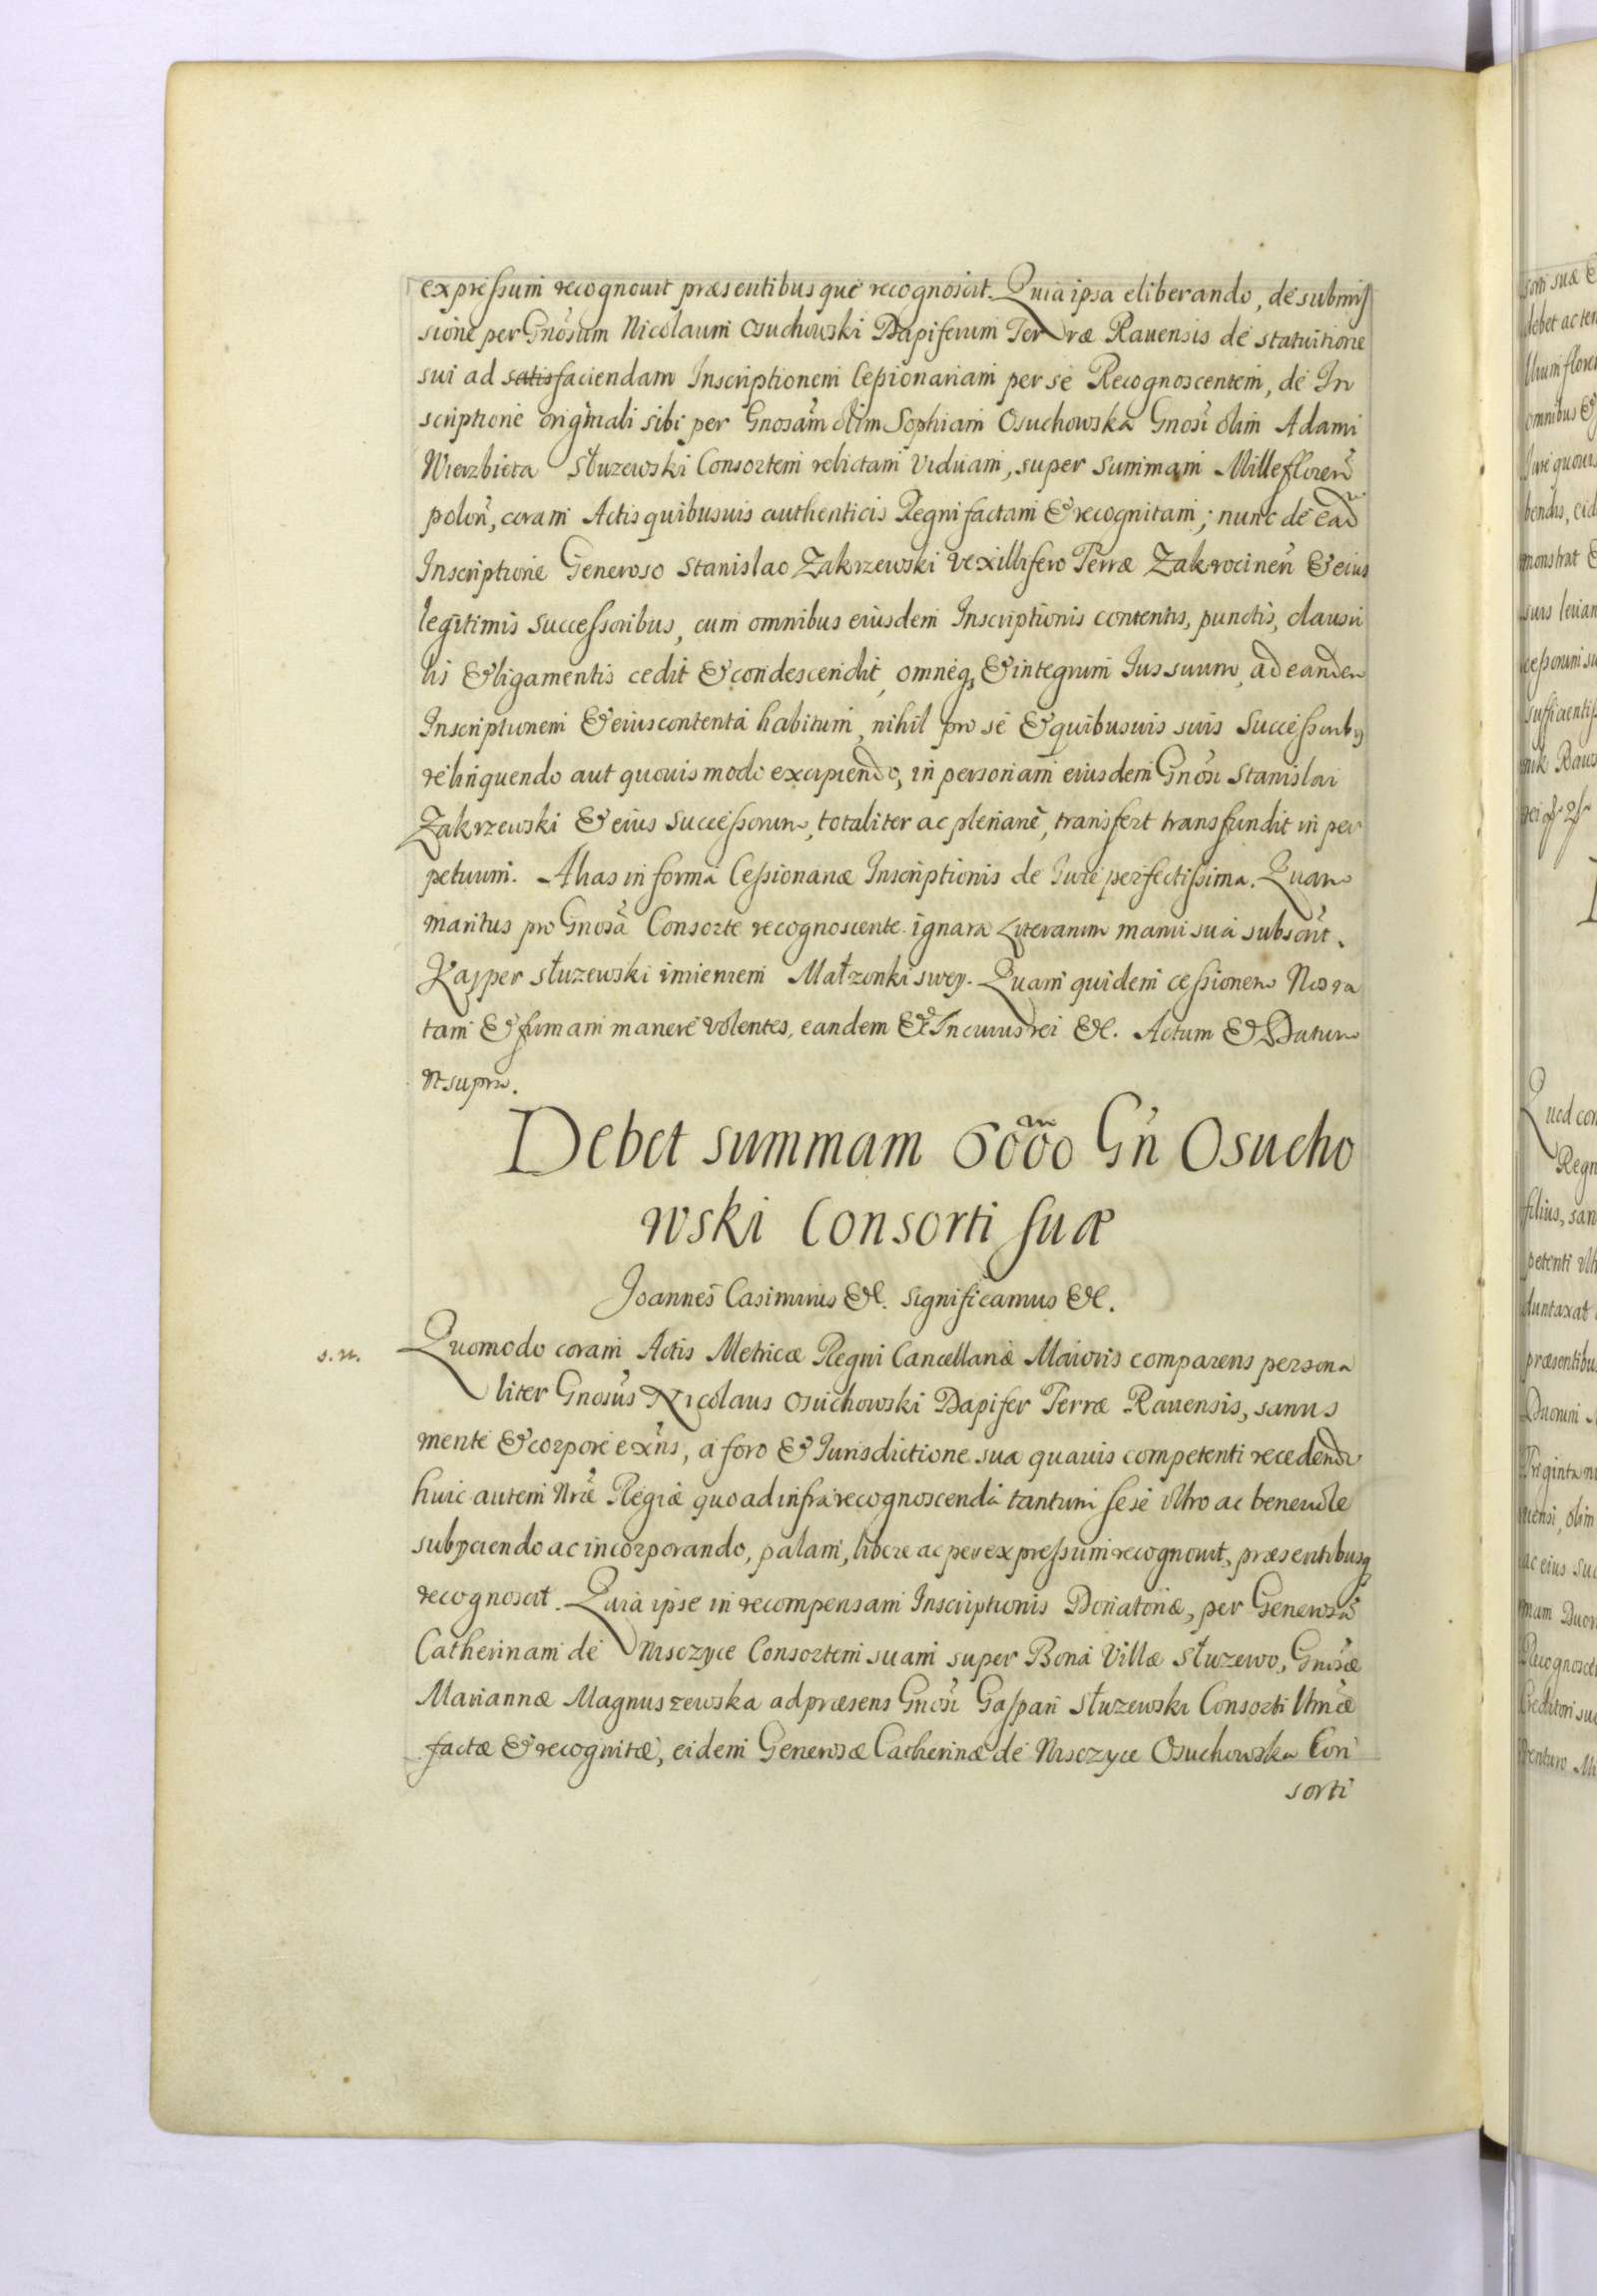 expressum recognouit præsentibusque recognoscit. Quia ipsa eliberando, de submis
sione per Gnosum Nicolaum Osuchowski Dapiferum Terræ Rauensis de statuitione
sui ad satisfaciendam Inscriptionem Cessionariam per se Recognoscentem, de In
scriptione originali sibi per Gnosam olim Sophiam Osuchowska Gnosi olim Adami
Wierzbieta Słuzewski Consortem relictam Viduam, super summam Mille floren
polon, coram Actis quibusuis authenticis Regni factam & recognitam; nunc de ead
Inscriptione Generoso Stanislao Zakrzewski Vexillifero Terræ Zakrocinen & eius
legitimis Successoribus, cum omnibus eiusdem Inscriptionis contentis, punctis, clausu
lis & ligamentis cedit & condescendit, omneq & integrum Ius suum, ad eandem
Inscriptionem & eius contenta habitum, nihil pro se & quibusuis suis Successorib9
relinquendo aut quouis modo excipiendo, in personam eiusdem Gnosi Stanislai
Zakrzewski & eius Successorum, totaliter ac plenarie, transfert transfundit in per
petuum. Alias in forma Cessionariæ Inscriptionis de Iure perfectissima. Quam
maritus pro Gnosa Consorte recognoscente ignara Literarum manu sua subscrit.
Kasper Słuzewski imieniem Małzonki swey. Quam quidem cessionem Nos ra
tam & firmam manere volentes, eandem &c. In cuius rei &c. Actum & Datum
vt supra.
Debet summam 6000 Gn Osucho
wski Consorti suæ
Joannes Casimirus &c. significamus &c.
s. n.
Quomodo coram Actis Metricæ Regni Cancellariæ Maioris comparens persona
liter Gnosus Nicolaus Osuchowski Dapifer Terræ Rauensis, sanus
mente & corpore exns, a foro & Iurisdictione sua quauis competenti recedendo
huic autem Nræ Regiæ quo ad infra recognoscenda tantum sese vltro ac beneuole
subijciendo ac incorporando, palam, libere ac per expressum recognouit, præsentibusq
recognoscit. Quia ipse in recompensam Inscriptionis Donatoriæ, per Generosa
Catherinam de Msczyce Consortem suam super Bona Villæ Słuzewo, Gnosæ
Mariannæ Magnuszewska ad præsens Gnosi Gaspari Słuzewski Consorti
factæ & recognitæ, eidem Generosæ Catherinæ de Msczyce Osuchowska Con
sorti